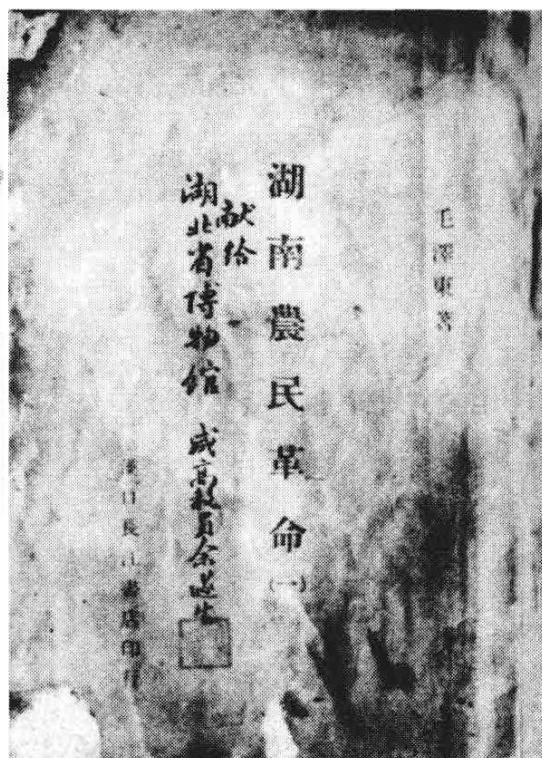 毛澤東著
湖南農民革命(一)
献给
湖北省博物馆 咸高教員余
漢口長江書店印行